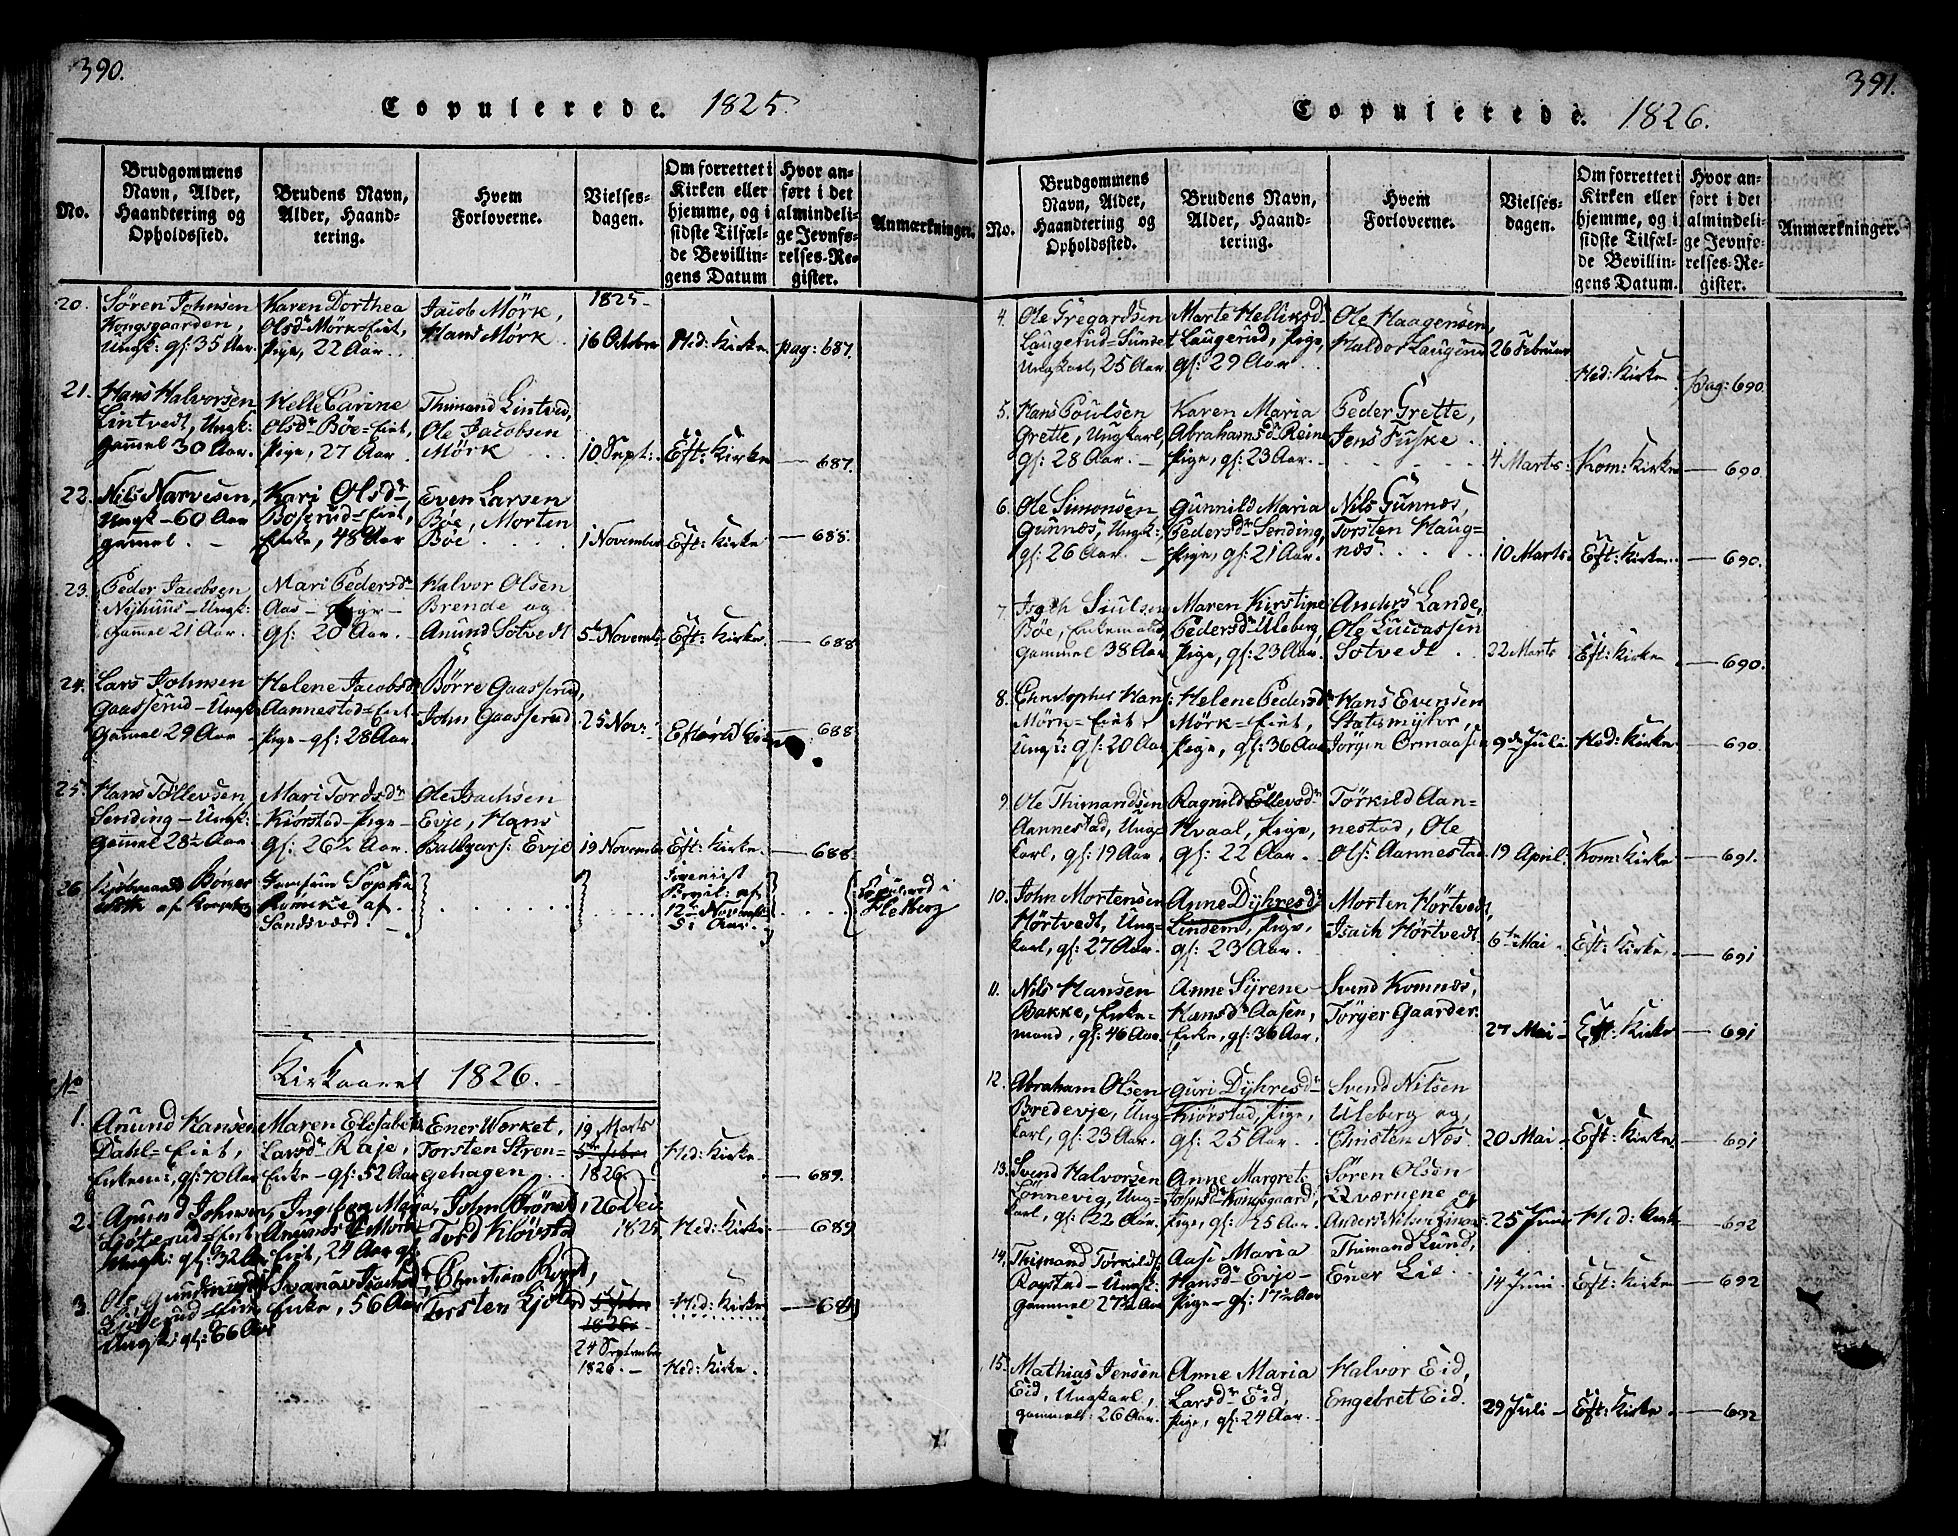 390.
Copulerede. 1825.
No.
Brudgommens
Navn, Alder,
Haandtering og
Opholdssted.
Brudens Navn,
Alder, Haand-
tering.
Hvem
Forloverne.
Vielses-
dagen.
Om forrettet i
Kirken eller
hjemme, og i
sidste Tilfæl-
de Bevillin-
gens Datum
Hvor an-
ført i det
almindeli-
ge Jevnfø-
relses-Re-
gister.
Anmærkninger.
20.
Søren Johnsen
Kongsgaarden,
Ungk: gl: 35 Aar.
Karen Dorthea
Olsdr Mörk=Eiet,
Pige, 22 Aar.
Jacob Mörk,
Hans Mörk.
1825
16 October
Hed: Kirke.
pag: 687.
21.
Hans Halvorsen
Lintvedt, Ungk:
gammel 30 Aar.
Helle Carine
Olsdr Böe=Eiet,
Pige, 27 Aar.
Thimand Lintved,
Ole Jacobsen
Mörk
10 Sept:
Eft: Kirke
687.
22.
Nils Narvesen,
Ungk - 60 Aar
gammel.
Kari Olsdr
Boserud=Eiet,
Enke, 48 Aar
Even Larsen
Böe, Morten
Böe
1 November
Eft: Kirke
688.
23.
Peder Jacobsen
Nyhuus - Ungk:
gammel 21 Aar.
Mari Pedersdr
Aas - Pige -
gl: 20 Aar.
Halvor Olsen
Brende og
Anund Sotvedt
5te November
Eft: Kirke.
688
24.
Lars Johnsen
Gaasserud - Ungk
gammel 29 Aar
Helene Jacobsdr
Aannestad=Eiet
Pige - gl: 28 Aar
Börre Gaasserud,
John Gaasserud
25 Nov:
688
25.
Hans Tollevsen
Sending - Ungk:
gammel 28½ Aar
Mari Tordsdr
Kiørstad - Pige -
gl: 26½ Aar.
Ole Isachsen
Evje, Hans
Baltzars: Evje
19 November
Eft: Kirke.
688.
26
Jomfrue Sophie
af
Sandsværd.
12te November
Kirkaaret 1826.
No
1.
Anund Hansen
Dahl=Eiet,
Enkem:, gl: 70 Aar
Maren Elisabeth
Larsdr Raje,
Enke - gl: 52 Aar
Ener Werket,
Torsten Stren-
gehagen
19 Marts
1826.
Hed: Kirke
689.
2.
Anund Johnsen,
Ungk: gl: 32 Aar
Ingeborg Maria
Eiet, 24 Aar gl:
Tord Klövstad
26 Dec:
1825
Hed: Kirke
689
3.
Ungk: gl: 66 Aar
Enke, 56 Aar
Christian
Torsten
5 Febr
1826.
24 September
1826.
Hed: Kirke
Hed: Kirke.
689
391.
Copulerede. 1826.
No.
Brudgommens
Navn, Alder,
Haandtering og
Opholdssted.
Brudens Navn,
Alder, Haand-
tering.
Hvem
Forloverne.
Vielses-
dagen.
Om forrettet i
Kirken eller
hjemme, og i
sidste Tilfæl-
de Bevillin-
gens Datum.
Hvor an-
ført i det
almindeli-
ge Jevnfø-
relses-Re-
gister.
Anmærkninger.
4.
Ole Gregardsen
Laugerud=Sundet
Ungkarl, 25 Aar
Marte Helliksdr
Laugerud, Pige,
gl: 29 Aar.
Ole Haagensen,
Haldor Laugerud
26 Februar
Hed: Kirke
Pag: 690.
5.
Hans Poulsen
Grette, Ungkarl,
gl: 28 Aar.
Karen Maria
Abrahamsdr Reine
Pige, gl: 23 Aar.
Peder Grette,
Jens Fuske.
4 Marts:
Kom: Kirke
690.
6.
Ole Simonsen
Gunnæs, Ungk:
gl: 26 Aar.
Gunnild Maria
Pedersdr Sending,
Pige, gl: 21 Aar.
Nils Gunnæs,
Torsten Haug-
næs.
10 Marts.
Eft: Kirke.
690.
7.
Böe, Enkemand,
gammel 38 Aar
Maren Kirstine
Pedersdr Uleberg,
Pige, gl: 23 Aar.
Anders Lande,
Ole Luccassen
Sotvedt.
22 Marts
Eft: Kirke
690.
8.
Christopher Hans:
Mörk=Eiet
Ungk: gl: 20 Aar
Helene Pedersdr
Mörk=Eiet,
Pige, gl: 36 Aar
Hans Evensen
Statsmyhr,
Jörgen Ormaasen
9de Juli.
Hed: Kirke
690.
9.
Ole Thimandsen
Aannestad, Ung-
karl, gl: 19 Aar
Ragnild Ellevsdr
Hvaal, Pige,
gl: 22 Aar.
Törkild Aan-
nestad, Ole
Ols: Aannestad
19 April:
Kom: Kirke
691.
10.
John Mortensen
Hörtvedt, Ung-
karl, gl: 27 Aar.
Anne Dyhresdr
Lindem, Pige,
gl: 23 Aar.
Morten Hörtvedt,
Isach Hörtvedt
6te Mai.
Eft: Kirke.
691
11.
Nils Hansen
Bakke, Enke-
mand, gl: 46 Aar.
Anne Syrene
Hansdr Aasen,
Enke, gl: 36 Aar.
Svend Komnæs,
Törger Gaarder.
27 Mai -
Eft: Kirke
691
12.
Abraham Olsen
Bredevje, Ung-
karl, gl: 23 Aar.
Guri Dyhresdr
Kiørstad, Pige,
gl: 25 Aar.
Svend Nilsen
Uleberg og,
Christen Næs
20 Mai -
Eft: Kirke
691
13.
Svend Halvorsen
Lönnevig, Ung-
karl, gl: 22 Aar.
Anne Margrete
Johnsdr Kongsgaard,
Pige, gl: 25 Aar.
Sören Olsen
Qværnene og
Anders Nilsen
25 Juni
Hed: Kirke
692
14.
Thimand Törkilds:
Rogstad - Ungk:
gammel 27½ Aar
Aase Maria
Hansdr Evje -
Pige - gl: 17½ Aar
Thimand Lund,
Ener Lie.
14 Juni
Eft: Kirke
692
15.
Mathias Jensen
Eid, Ungkarl,
gammel: 26 Aar.
Anne Maria
Larsdr Eid,
Pige, gl: 24 Aar.
Halvor Eid,
Engebret Eid.
29 Juli -
Eft: Kirke
692